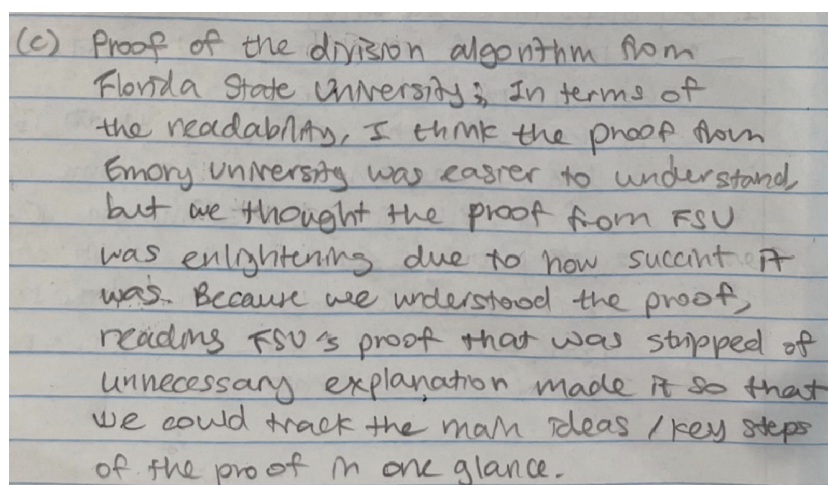 (c) Proof of the division algorithm from
Florida State University; In terms of
the readability, I think the proof from
Emory University was easier to understand,
but we thought the proof from FSU
was enlightening due to how succint it
was. Because we understood the proof,
reading FSU's proof that was stripped of
unnecessary explanation made it so that
we could track the main ideas / key steps
of the proof in one glance.